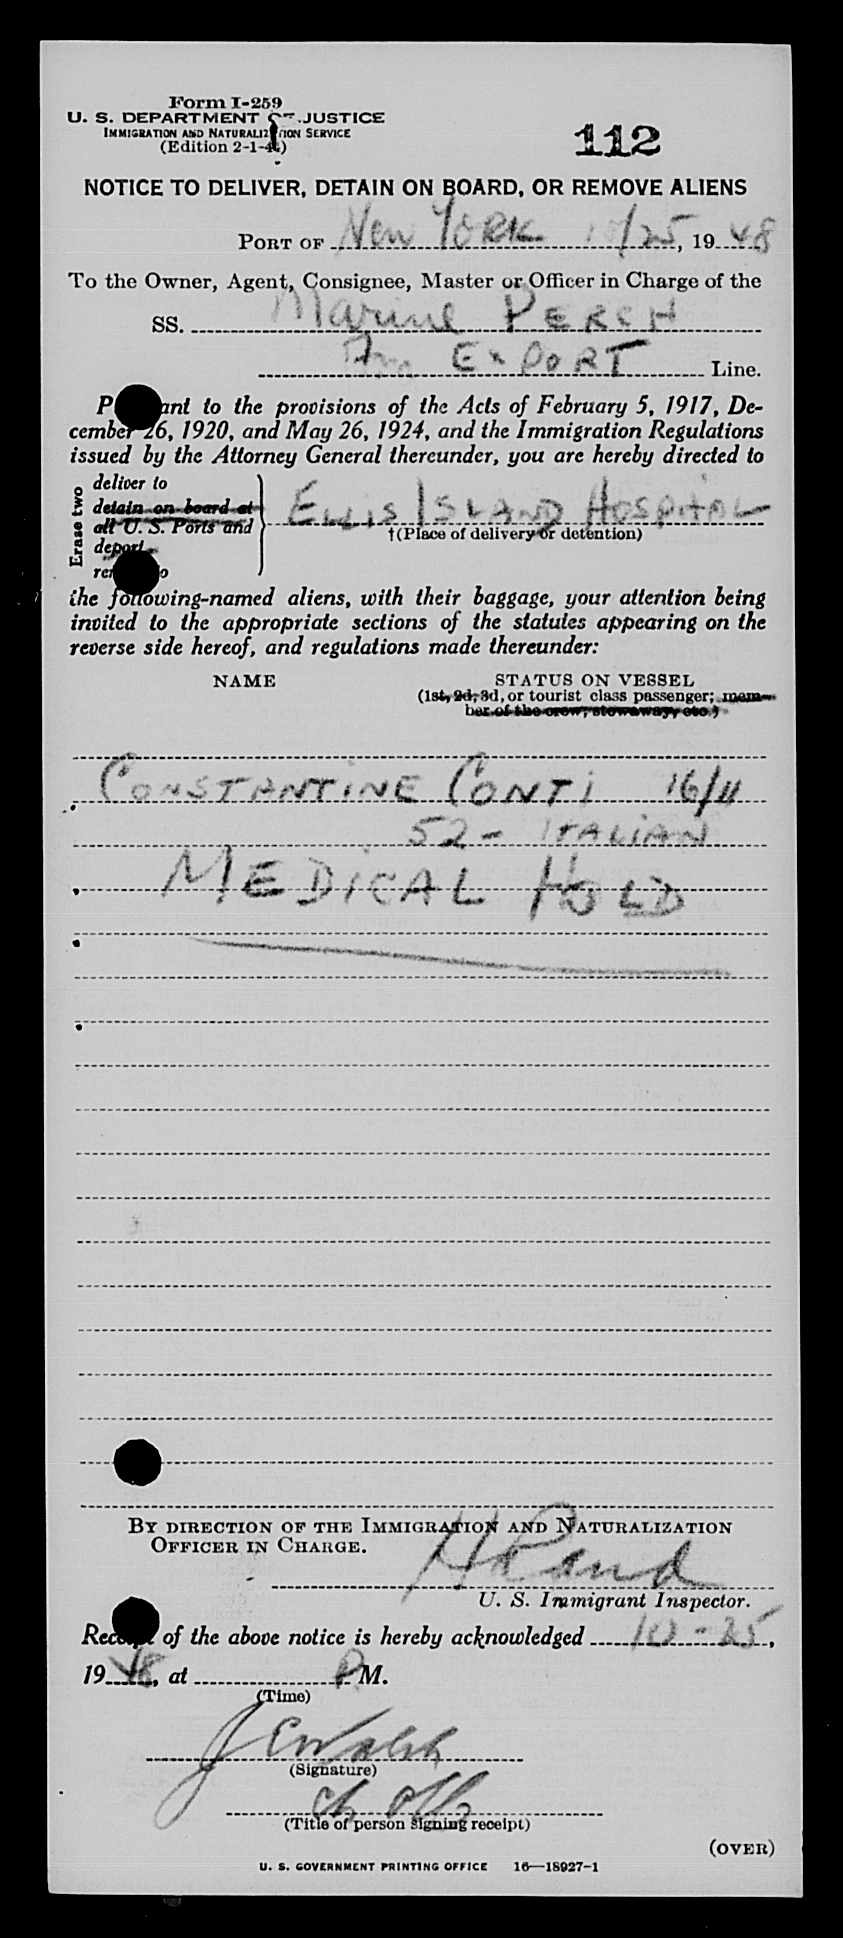 Form I-259
U. S. DEPARTMENT OF JUSTICE
IMMIGRATION AND NATURALIZATION SERVICE
(Edition 2-1-4
112
NOTICE TO DELIVER, DETAIN ON BOARD, OR REMOVE ALIENS
PORT OF New YORK 10/25, 1948
To the Owner, Agent, Consignee, Master or Officer in Charge of the
SS. Marine PERCH
Am EXPORT Line.
Pursuant to the provisions of the Acts of February 5, 1917, De-
cember 26, 1920, and May 26, 1924, and the Immigration Regulations
issued by the Attorney General thereunder, you are hereby directed to
Erase two
deliver to
detain on board at
all U. S. Ports and
deport
remove to
ELLIS ISLAND HOSPITAL
†(Place of delivery or detention)
the following-named aliens, with their baggage, your attention being
invited to the appropriate sections of the statutes appearing on the
reverse side hereof, and regulations made thereunder:
NAME STATUS ON VESSEL
(1st, 2d, 3d, or tourist class passenger; mem-
ber of the crew, stowaway, etc.)
CONSTANTINE CONTI 16/11
52 - ITALIAN
MEDICAL HOLD
BY DIRECTION OF THE IMMIGRATION AND NATURALIZATION
OFFICER IN CHARGE.
U. S. Immigrant Inspector.
Receipt of the above notice is hereby acknowledged 10-25,
1948, at P M.
(Time)
(Signature)
(Title of person signing receipt)
(OVER)
U. S. GOVERNMENT PRINTING OFFICE 16—18927-1